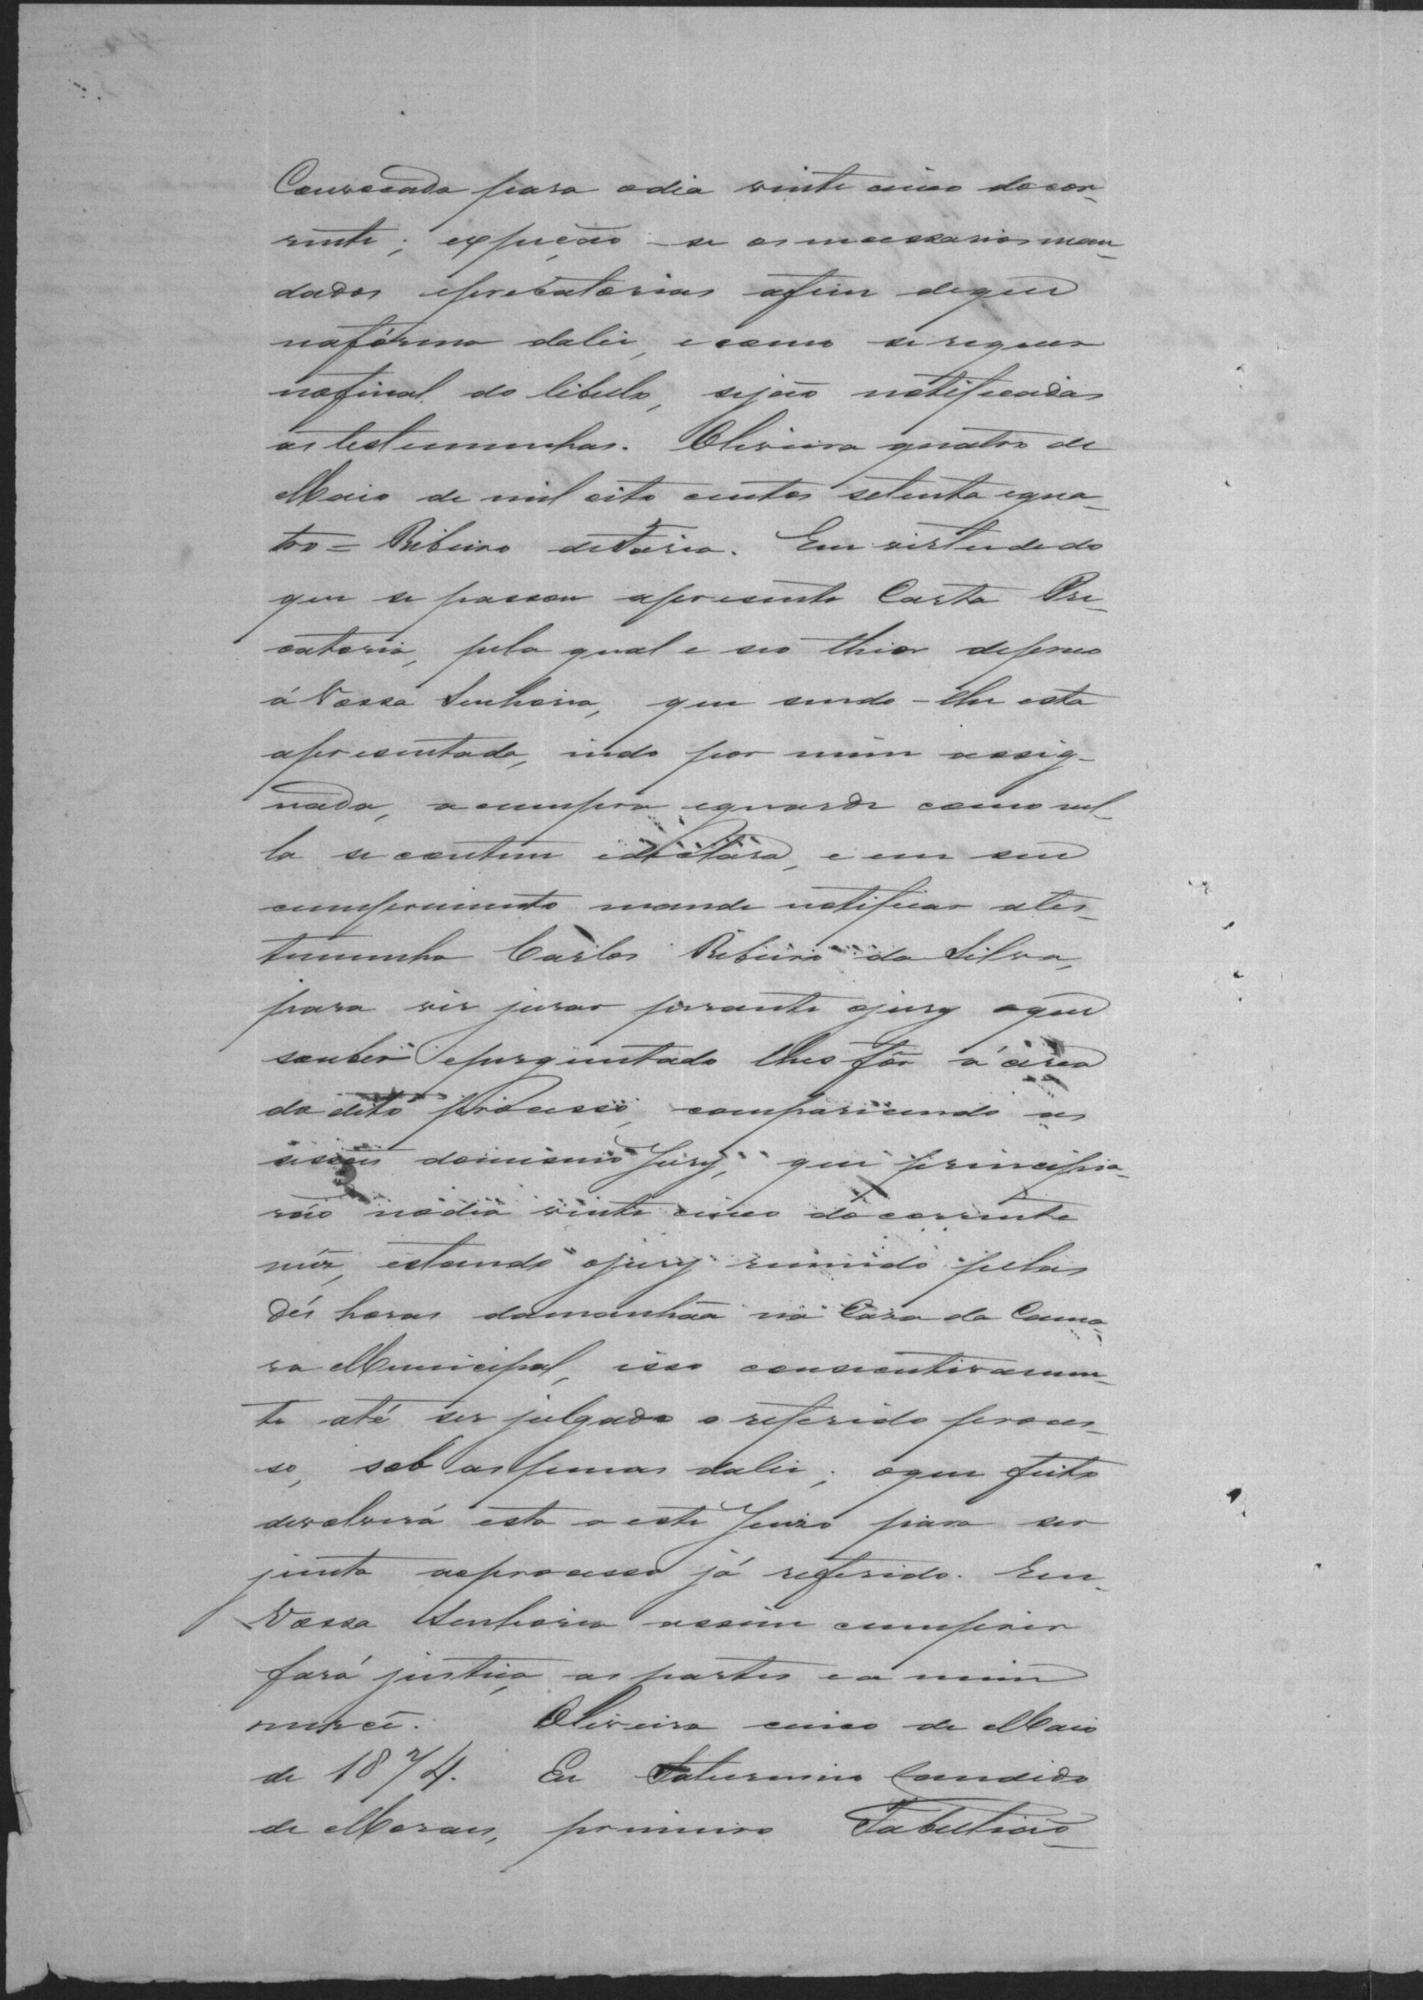 Convocada para odia vinte cinco docor-
rente; expeção-se os necessarios man-
dados eprecatorias afim deque
nafórma dalei, e como se requer
nofinal do libello, sejão notificadas
as testemunhas. Oliveira quatro de
Maio de mil oito centos setenta equa-
tro = Ribeiro de Faria. Em virtude do
que se passou apresente Carta Pre-
catoria, pela qual e seo theor depreco
á Vossa Senhoria, que sendo-lhe esta
apresentada, indo por mim assig-
nada, a cumpra eguarde como nel-
la se contem e declara, e em seu
cumprimento mande notificar ates-
temunha Carlos Ribeiro da Silva,
para vir jurar perante ojury oque
souber eperguntado lhes fôr á cerca
do dito processo, comparecendo as
sessões do mesmo Jury, que principia-
rão nodia vinte cinco do corrente
mez, estando ojury reunido pelas
dés horas damanhãa na Casa da Cama-
ra Municipal, isso consecutivamen-
te até ser julgado o referido proces-
so, sob as penas dalei; oque feito
devolverá esta a este Juizo para ser
junta aoprocesso já referido. Em
Vossa Senhoria assim cumprir
fará justiça as partes e a mim
mercê. Oliveira cinco de Maio
de 1874. Eu Saturnino Candido
de Moraes, primeiro Tabellião